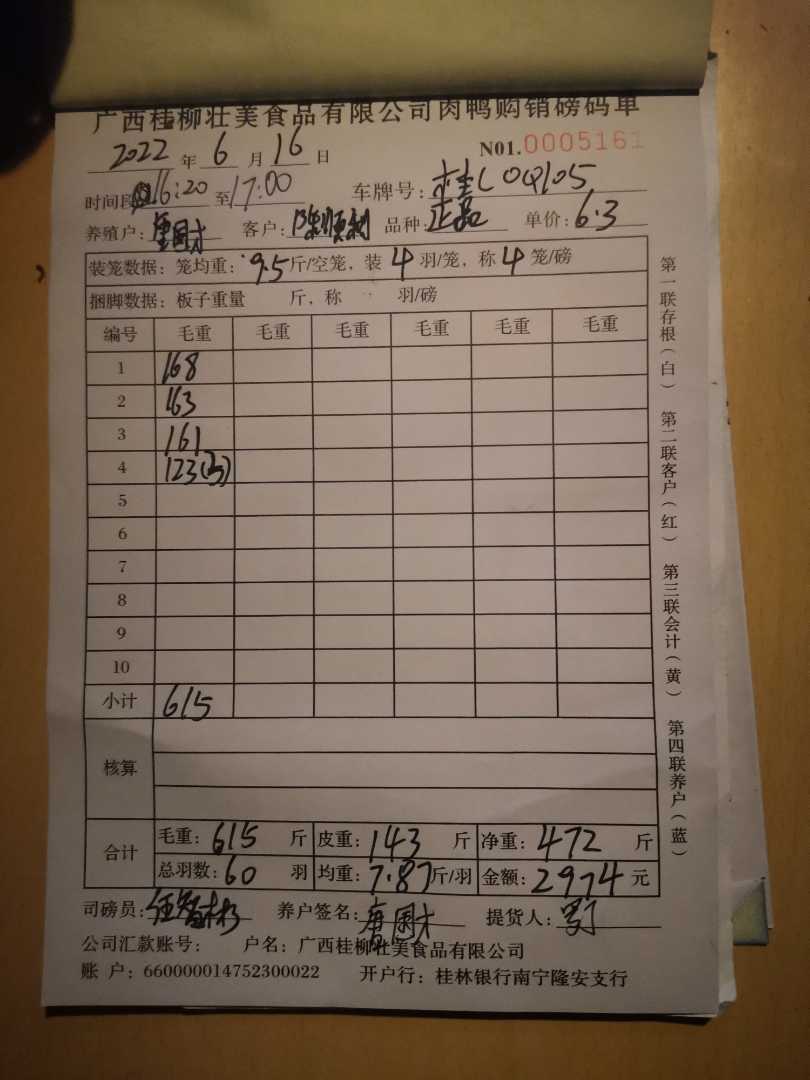 广西桂柳壮美食品有限公司肉鸭购销磅码单
2022年6月16日 N01.0005161
时间段16:20至17:00 车牌号:桂L0Q105
养殖户:唐国才 客户:陈顺利 品种:正品 单价:6.3
装笼数据:笼均重:9.5斤/空笼,装4羽/笼,称4笼/磅
捆脚数据:板子重量 斤,称 羽/磅
编号 毛重 毛重 毛重 毛重 毛重 毛重
1 168
2 163
3 161
4 123(3)
5
6
7
8
9
10
小计 615
核算
合计 毛重:615斤 皮重:143斤 净重:472斤
总羽数:60羽 均重:7.87斤/羽 金额:2974元
司磅员: 养户签名:唐国才 提货人:
公司汇款账号: 户名:广西桂柳壮美食品有限公司
账户:660000014752300022 开户行:桂林银行南宁隆安支行
第一联存根(白) 第二联客户(红) 第三联会计(黄) 第四联养户(蓝)